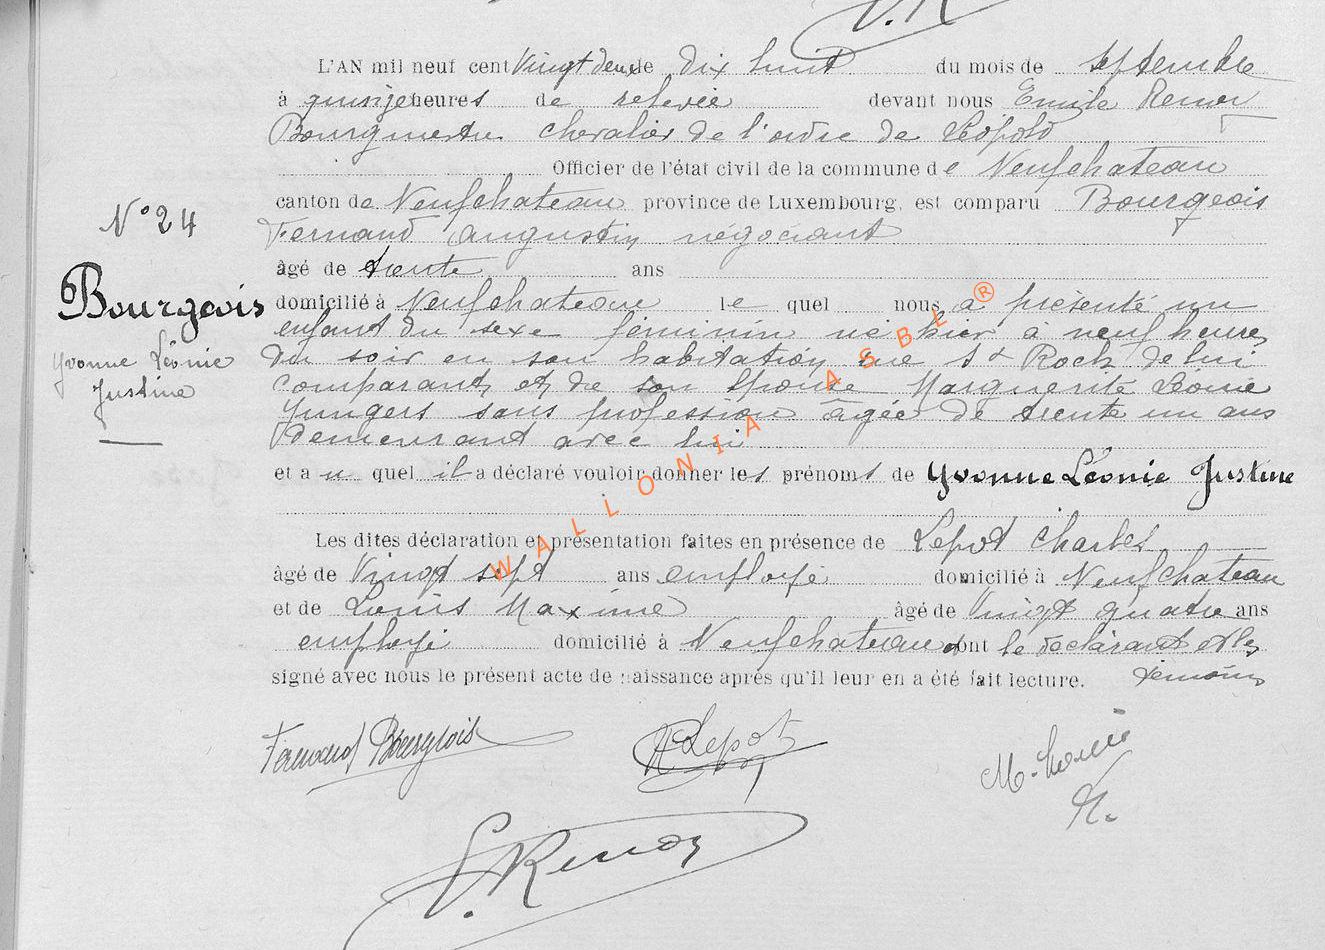 L'AN mil neuf cent Vingt deux le dix huit du mois de septembre
à quinze heures de relevée devant nous Emile Renoy
Bourgmestre chevalier de l'ordre de Léopold
Officier de l'état civil de la commune de Neufchateau
canton de Neufchateau province de Luxembourg, est comparu Bourgeois
Fernand Augustin négociant
âgé de trente ans
domicilié à Neufchateau le quel nous a présenté un
enfant du sexe féminin né hier à neuf heures
du soir en son habitation rue St Roch de lui
comparant et de son épouse Marguerite Léonie
Jungers sans profession âgée de trente un ans
demeurant avec lui
et au quel il a déclaré vouloir donner les prénoms de Yvonne Léonie Justine
Les dites déclaration et présentation faites en présence de Lepot Charles
âgé de Vingt sept ans employé domicilié à Neufchateau
et de Louis Maxime âgé de Vingt quatre ans
employé domicilié à Neufchateau dont le déclarant et les
signé avec nous le présent acte de naissance après qu'il leur en a été fait lecture. témoins
N° 24
Bourgeois
Yvonne Léonie
Justine
Fernand Bourgeois
Lepot
M. Louis
E. Renoy
WALLONIA ASBL ®